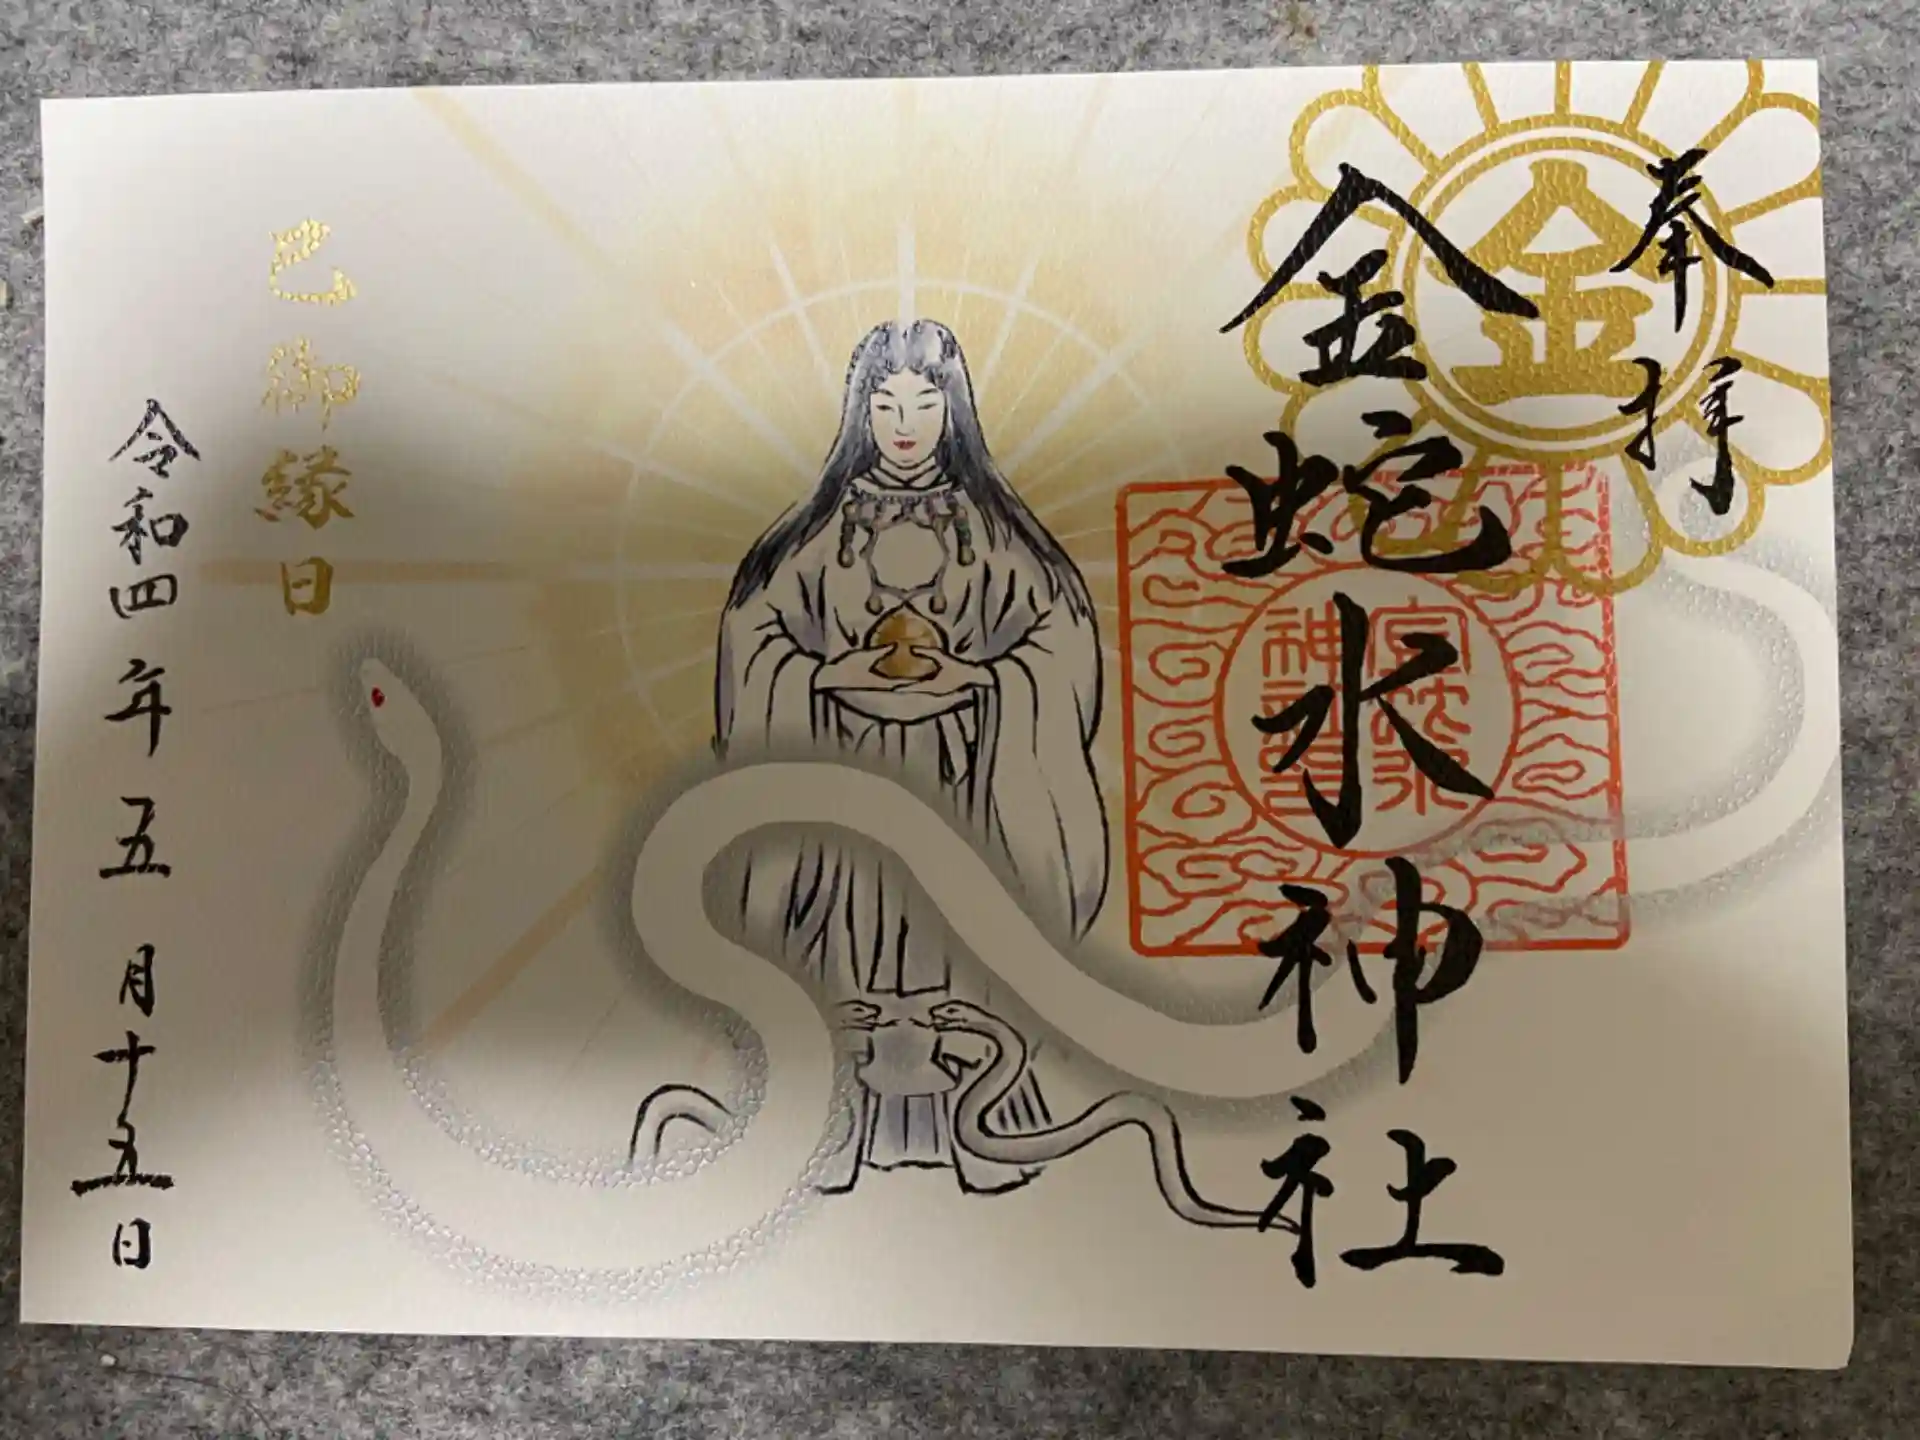 奉拝
金
金蛇水神社
金蛇水
神社印
巳御縁日
令和四年五月十五日